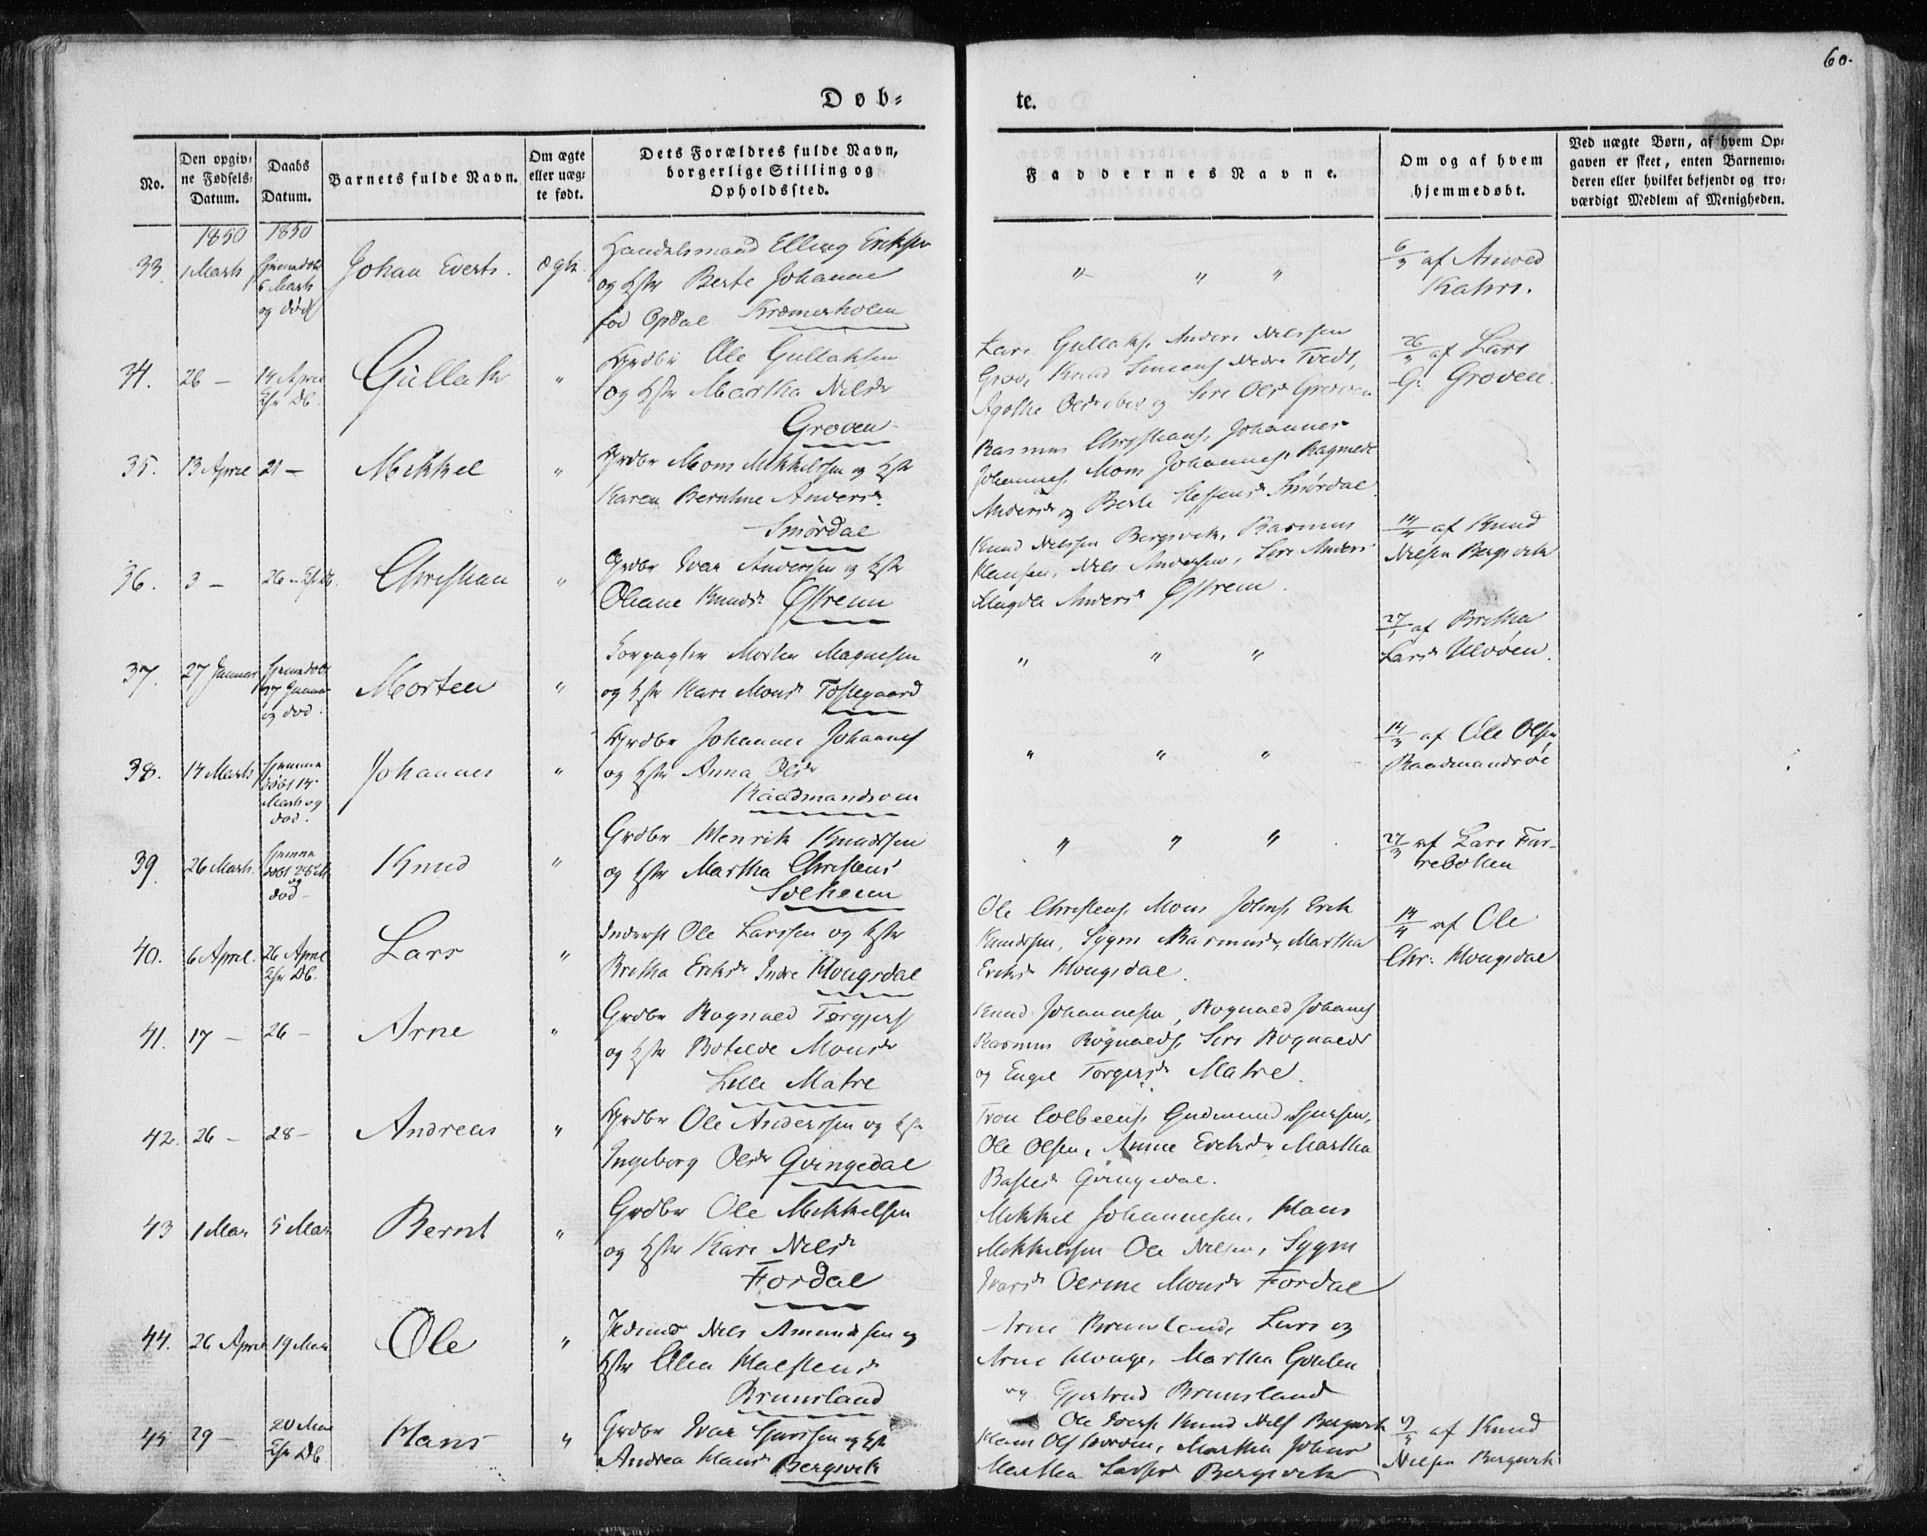 60.
Døb=
te.
No.
Den opgiv=
ne Fødsels=
Datum.
Daabs
Datum.
Barnets fulde Navn.
Om ægte
eller uæg=
te født.
Dets Forældres fulde Navn,
borgerlige Stilling og
Opholdssted.
Faddernes Navne.
Om og af hvem
hjemmedøbt.
Ved uægte Børn, af hvem Op=
gaven er skeet, enten Barnemo=
deren eller hvilket bekjendt og tro=
værdigt Medlem af Menigheden.
1850
1850
33.
1 Marts
Hjemmedøbt
6 Marts
og død
Johan Everts.
ægte.
Handelsmand Elling Eriksen
og Hstr Berte Johanne
fød Opdal Kræmerholm
" " "
6/3 af Amved
Kahrs.
34.
26 –
14 April
Hjr Db.
Gullak
"
Grdbr Ole Gullaksen
og Hstr Martha Nilsdr
Groven
Lars Gullaks. Anders Nilssen
Grov, Knud Simens. Nedre Tvedt,
Agathe Olsdr ibid og Siri Olsdr Groven
26/3 af Lars
G. Groven.
35.
13 April
21 –
Mikkel
"
Grdbr Mons Mikkelsen og Hstr
Karen Berntine Andersdr
Smørdal
Rasmus Christians. Johannes
Johannes. Mons Johannes. Ragnilde
Andersdr og Berte Steffensdr Smørdal.
36.
3 –
26 – Hjr Db.
Christian
"
Grdbr Ivar Anderssen og Hstr
Oliane Knudsdr Østrem
Knud Nilssen Bergsvik, Rasmus
Hansen, Nils Andersen, Siri Anders
Magdli Andersdr Østrem.
14/4 af Knud
Nilsen Bergsvik
37.
27 Januar
Hjemmedøbt
27 Januar
og død.
Morten
"
Forpagter Morten Magnesen
og Hstr Kari Monsdr Toftegaard
" " "
27/1 af Britha
Larsdr Ulvøen.
38.
14 Marts
Hjemme
døbt 14
Marts og
død.
Johannes
"
Grdbr Johannes Johannes
og Hstr Anna Olsdr
Raadmandsøen
" " "
14/3 af Ole Olsen
Raadmandsøe
39.
26 Marts.
Hjemme
døbt 28 M.
og
død –
Knud
"
Grdbr Henrik Knudssen
og Hstr Martha Christens
Solheim
" " "
27/3 af Lars Fur-
rebotten
40.
6 April.
26 April
Hjr Db.
Lars
"
Inderst Ole Larssen og Hstr
Britha Eriksdr Indre Hougsdal
Ole Christens. Mons Johns. Erik
Knudssen, Sygni Rasmusdr, Martha
Eriksdr Hougsdal.
14/4 af Ole
Chr. Hougsdal
41.
17 –
26 –
Arne
"
Grdbr Rognald Torgjers
og Hstr Botilde Monsdr
Lille Matre
Knud Johannesen, Rognald Johannes
Rasmus Rognalds. Siri Rognaldsdr
og Engel Torgersdr Matre.
42.
26 –
28 –
Andreas
"
Grdbr Ole Anderssen og Hstr
Ingeborg Olsdr Qvingedal
Tron Colbeens. Gudmund Sjursen,
Ole Olsen, Anne Eriksdr Martha
Bastesdr Qvingedal.
43
1 Mai
5 Mai
Bernt
"
Grdbr Ole Mikkelsen
og Hstr Kari Nilsdr
Fordal
Mikkel Johannesen, Hans
Mikkelssen Ole Nilsen, Sygni
Ivarsdr Oline Monsdr Fordal
44.
26 April
19 Mai
Ole
"
Nils Amundsen og
Hstr Alia Halstensdr
Brunsland
Arne Brunsland, Lars og
Arne Houge, Martha Gislen
og Gjertrud Brunsland
45
29 –
20 Mai
Hjr Db
Hans
"
Grdbr Ivar Sjurssen og Hstr
Andrea Hansdr Bergsvik
Ole Ivers. Knud Nilss Bergsvik
Hans Ols, Martha Johns
Martha Larsdr Bergsvik
5/5 af Knud
Nilsen Bergsvik